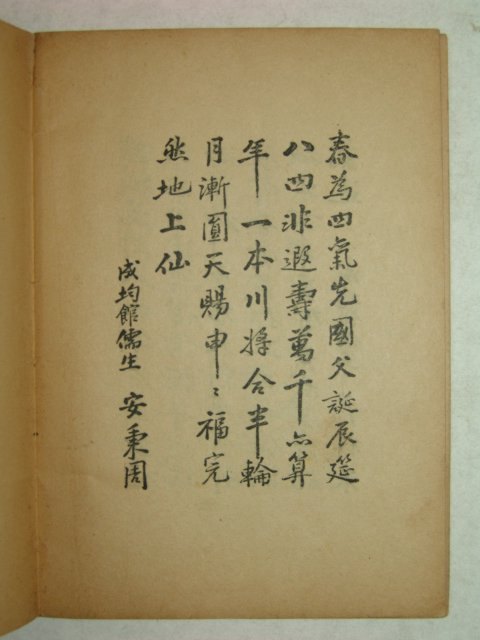 春為四氣先國父誕辰筵
八四非遐壽萬千亦算
年一本川将合半輪
月漸圓天賜申〻福完
然地上仙
成均館儒生 安秉周